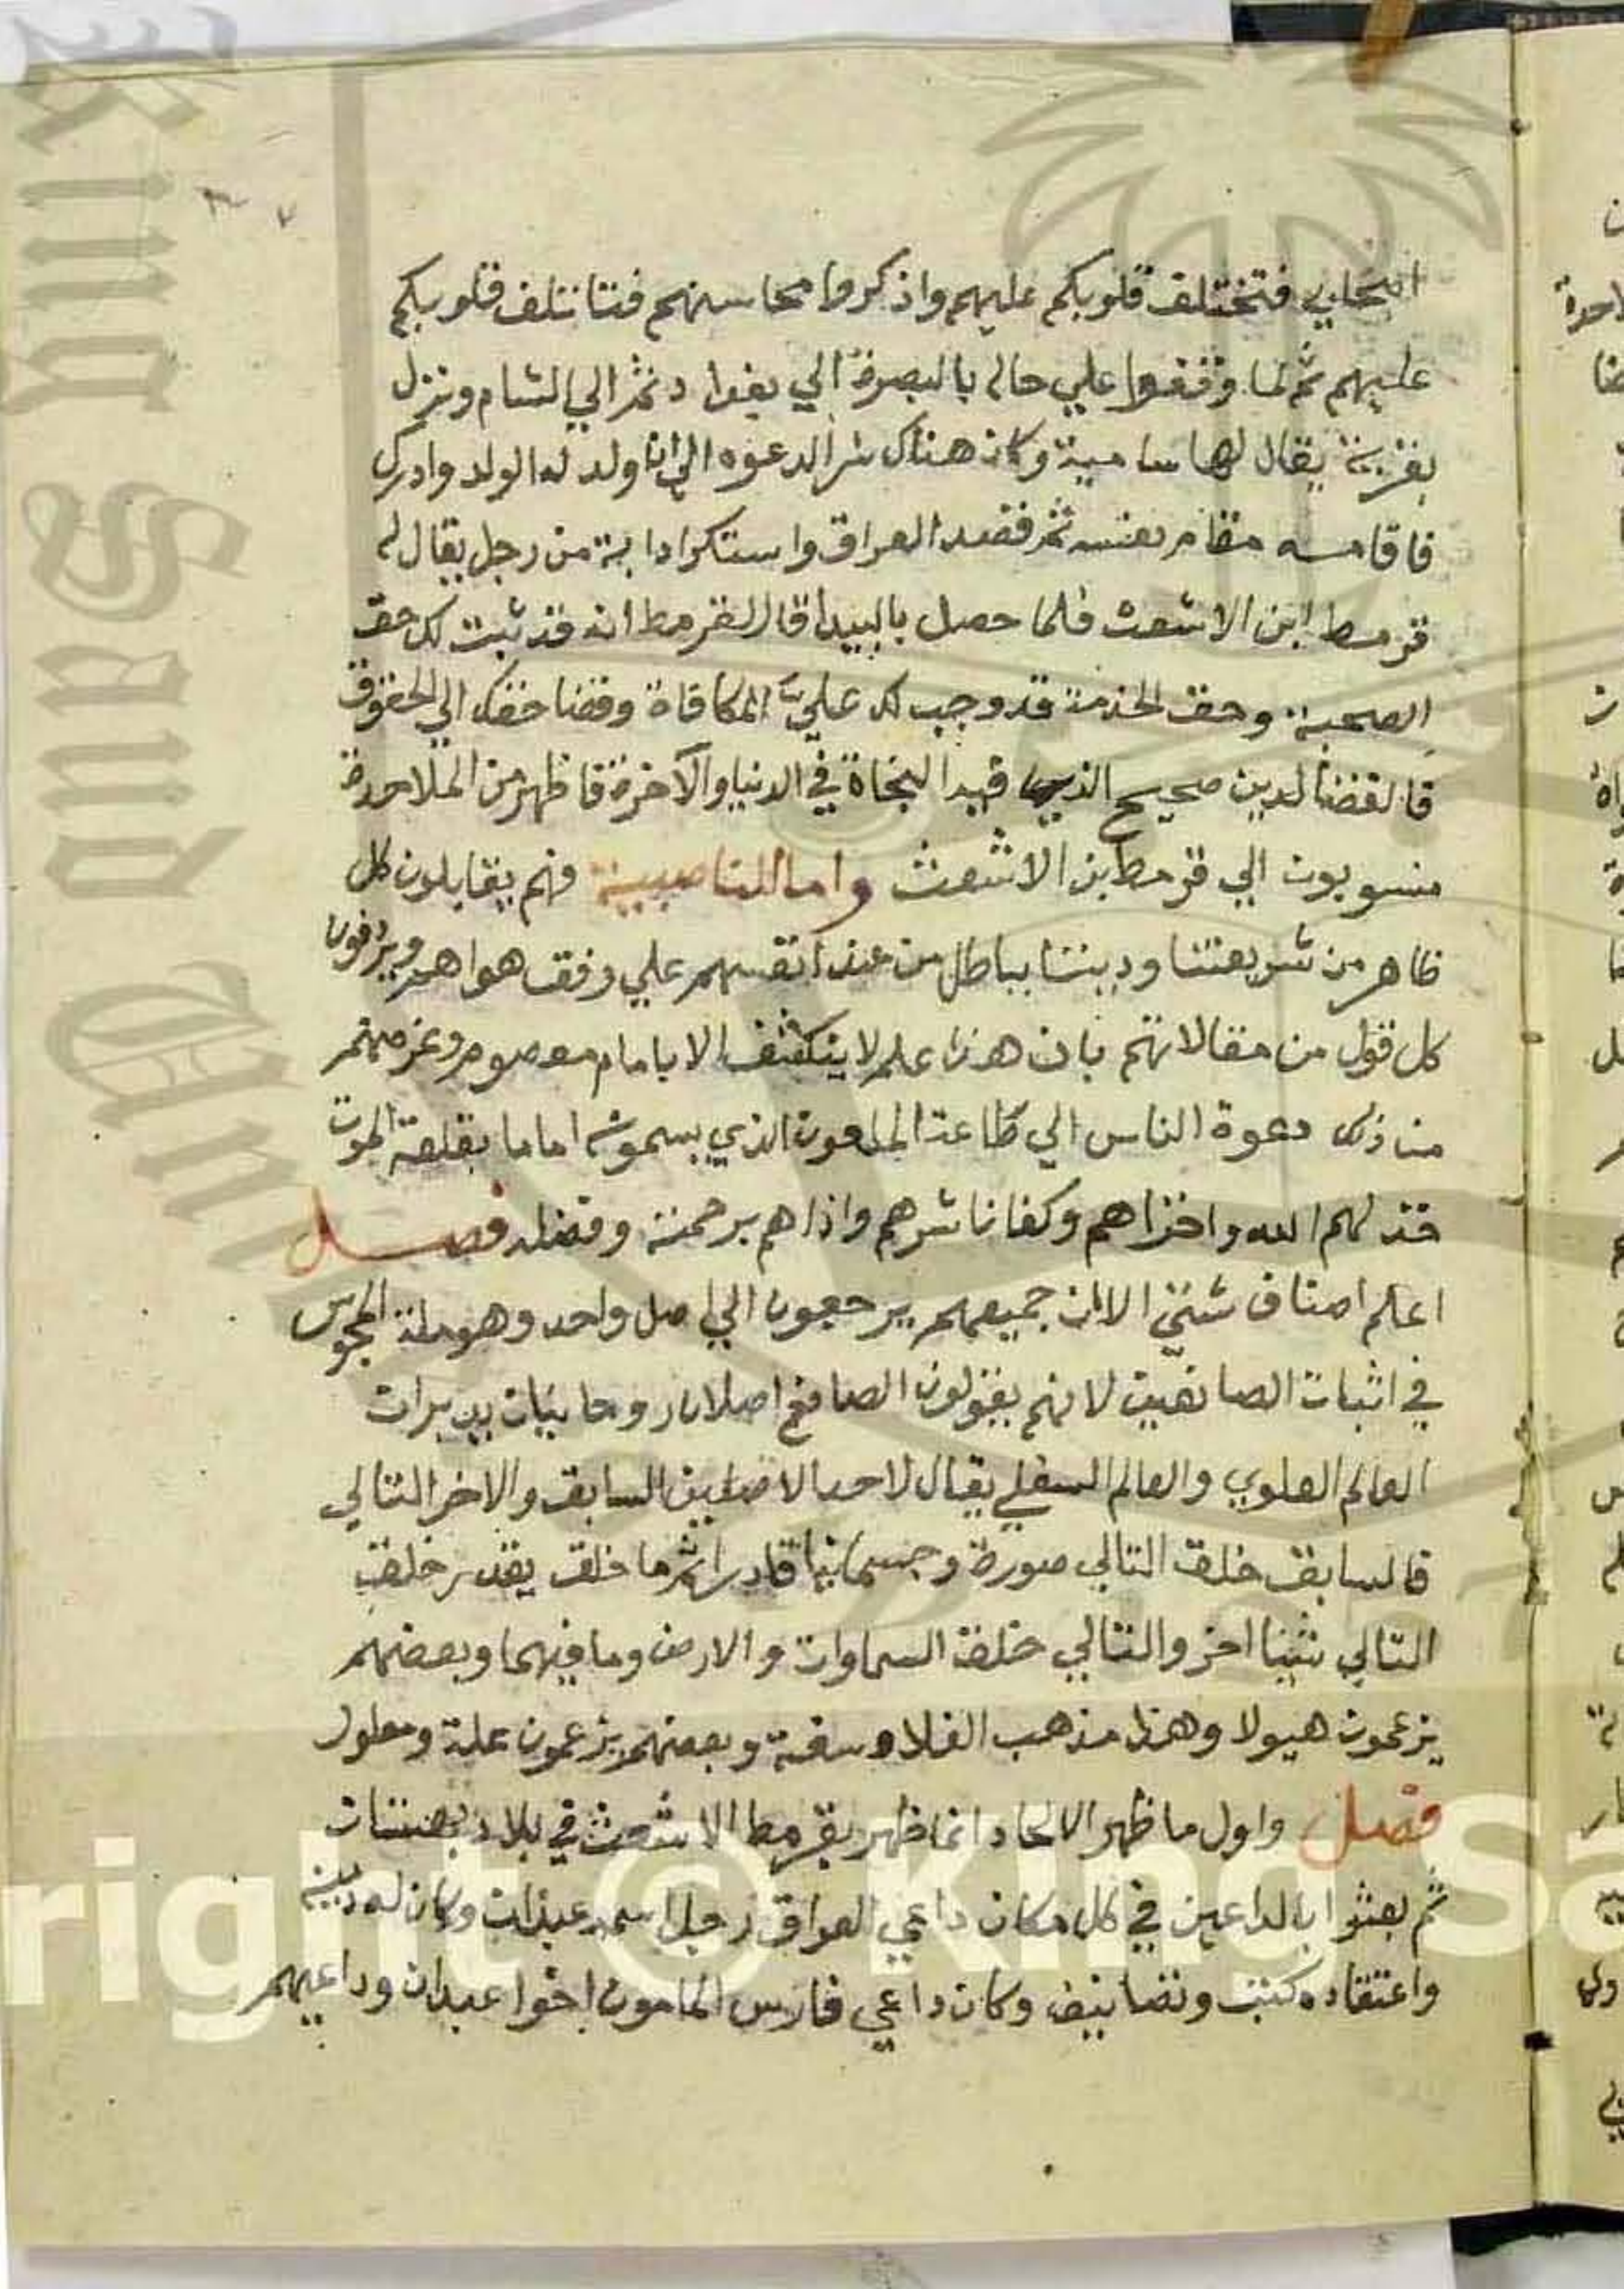 اصحابي فتختلف قلوبكم عليهم واذكروا محاسنهم فتاتلف قلوبكم
عليهم ثم لما وقفوا علي حاله بالبصرة الي بغداد ثم الي الشام ونزل
بقرية يقال لها سامية وكان هناك سر الدعوه الي ان ولد له الولد وادرك
فاقامه مقام نفسه ثم قصد العراق واستكرا دابة من رجل يقال له
قرمط ابن الاشعث فلما حصل بالبيدا قال لقرمط انه قد ثبت لك حق
الصحبة وحق الخدمة قد وجب لك علي المكافاة وقضا حقك الي الحقوق
قال قضا الدين صحيح الذي فيه النجاة في الدنيا والآخرة فاظهر من الملاحدة
منسوبون الي قرمط بن الاشعث واما الناصبية فهم يقابلون كل
ظاهر من شريعتنا وديننا بباطل من عند انفسهم علي وفق هواهم ويزخرفون
كل قول من مقالاتهم بان هذا علم لا ينكشف الا بامام معصوم وغرضهم
من ذلك دعوة الناس الي طاعة الملعون الذي يسمونه اماما بقلعة الموت
خذلهم الله واخزاهم وكفانا شرهم واذاهم برحمته وفضله فصل
اعلم اصناف شتي الا ان جميعهم يرجعون الي اصل واحد وهو ملة المجوس
في اثبات الصانعين لانهم يقولون الصانع اصلان روحانيان يدبران
العالم العلوي والعالم السفلي يقال لاحد الاصلين السابق والاخر التالي
فالسابق خلق التالي صورة وجسمانيا قادرا ثم ما خلق يقدر خلق
التالي شيا اخر والتالي خلق السماوات والارض وما فيهما وبعضهم
يزعمون هيولا وهذا مذهب الفلاسفة وبعضهم يزعمون علة ومعلول
فصل واول ما ظهر الالحاد انما ظهر بقرمط الاشعث في بلاد
ثم بعثوا بالداعين في كل مكان داعي العراق رجل اسمه عبدان وكان له دينه
واعتقاده كتب وتصانيف وكان داعي فارس المامون اخوا عبدان وداعيهم